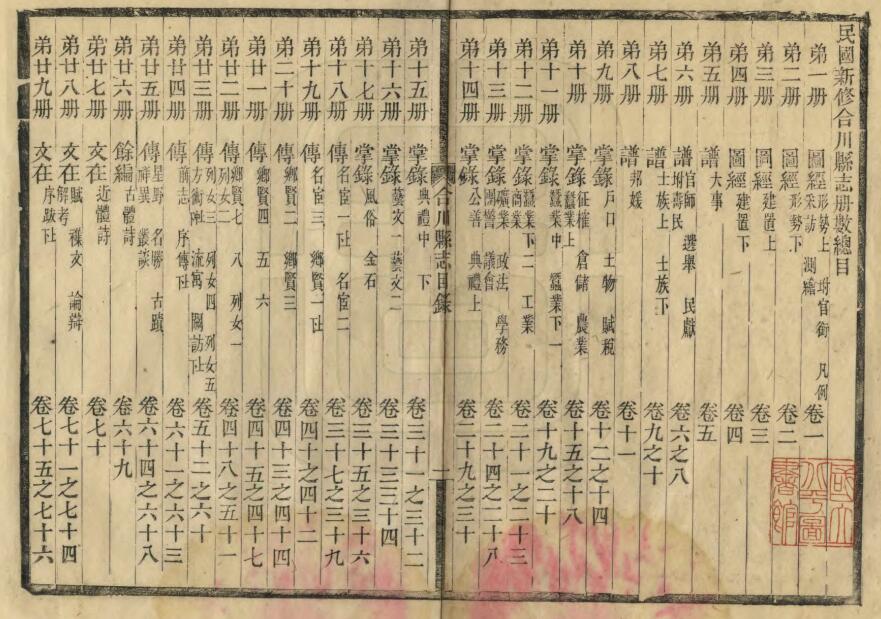 民國新修合川縣志册數總目
弟一册 圖經 形勢上 采訪 測繪 坿官銜 凡例 卷一
弟二册 圖經 形勢下 卷二
弟三册 圖經 建置上 卷三
弟四册 圖經 建置下 卷四
弟五册 譜 大事 卷五
弟六册 譜 官師 選舉 民獻 坿壽民 卷六之八
弟七册 譜 士族上 士族下 卷九之十
弟八册 譜 邦媛 卷十一
弟九册 掌錄 戶口 土物 賦稅 卷十二之十四
弟十册 掌錄 征榷 倉儲 農業 蠶業上 卷十五之十八
弟十一册 掌錄 蠶業中 蠶業下一 卷十九之二十
弟十二册 掌錄 蠶業下二 工業 商業 卷二十一之二十三
弟十三册 掌錄 礦業 政法 學務 團警 議會 卷二十四之二十八
弟十四册 掌錄 公善 典禮上 卷二十九之三十
合川縣志目錄
一
弟十五册 掌錄 典禮中 下 卷三十一之三十二
弟十六册 掌錄 藝文一 藝文二 卷三十三三十四
弟十七册 掌錄 風俗 金石 卷三十五之三十六
弟十八册 傳 名宦一上 名宦二 卷三十七之三十九
弟十九册 傳 名宦三 鄉賢一上 卷四十之四十二
弟二十册 傳 鄉賢二 鄉賢三 卷四十三之四十四
弟廿一册 傳 鄉賢四 五 六 卷四十五之四十七
弟廿二册 傳 鄉賢七 八 列女一 列女二 卷四十八之五十一
弟廿三册 傳 列女三 列女四 列女五 方術上下 流寓 闕訪上下 卷五十二之六十
弟廿四册 傳 前志 序傳上下 卷六十一之六十三
弟廿五册 傳 星野 名勝 古蹟 祥異 叢談 卷六十四之六十八
弟廿六册 餘編 古體詩 卷六十九
弟廿七册 文在 近體詩 卷七十
弟廿八册 文在 賦 襍文 論辯 解考 卷七十一之七十四
弟廿九册 文在 序跋上 下 卷七十五之七十六
國立北平圖書館